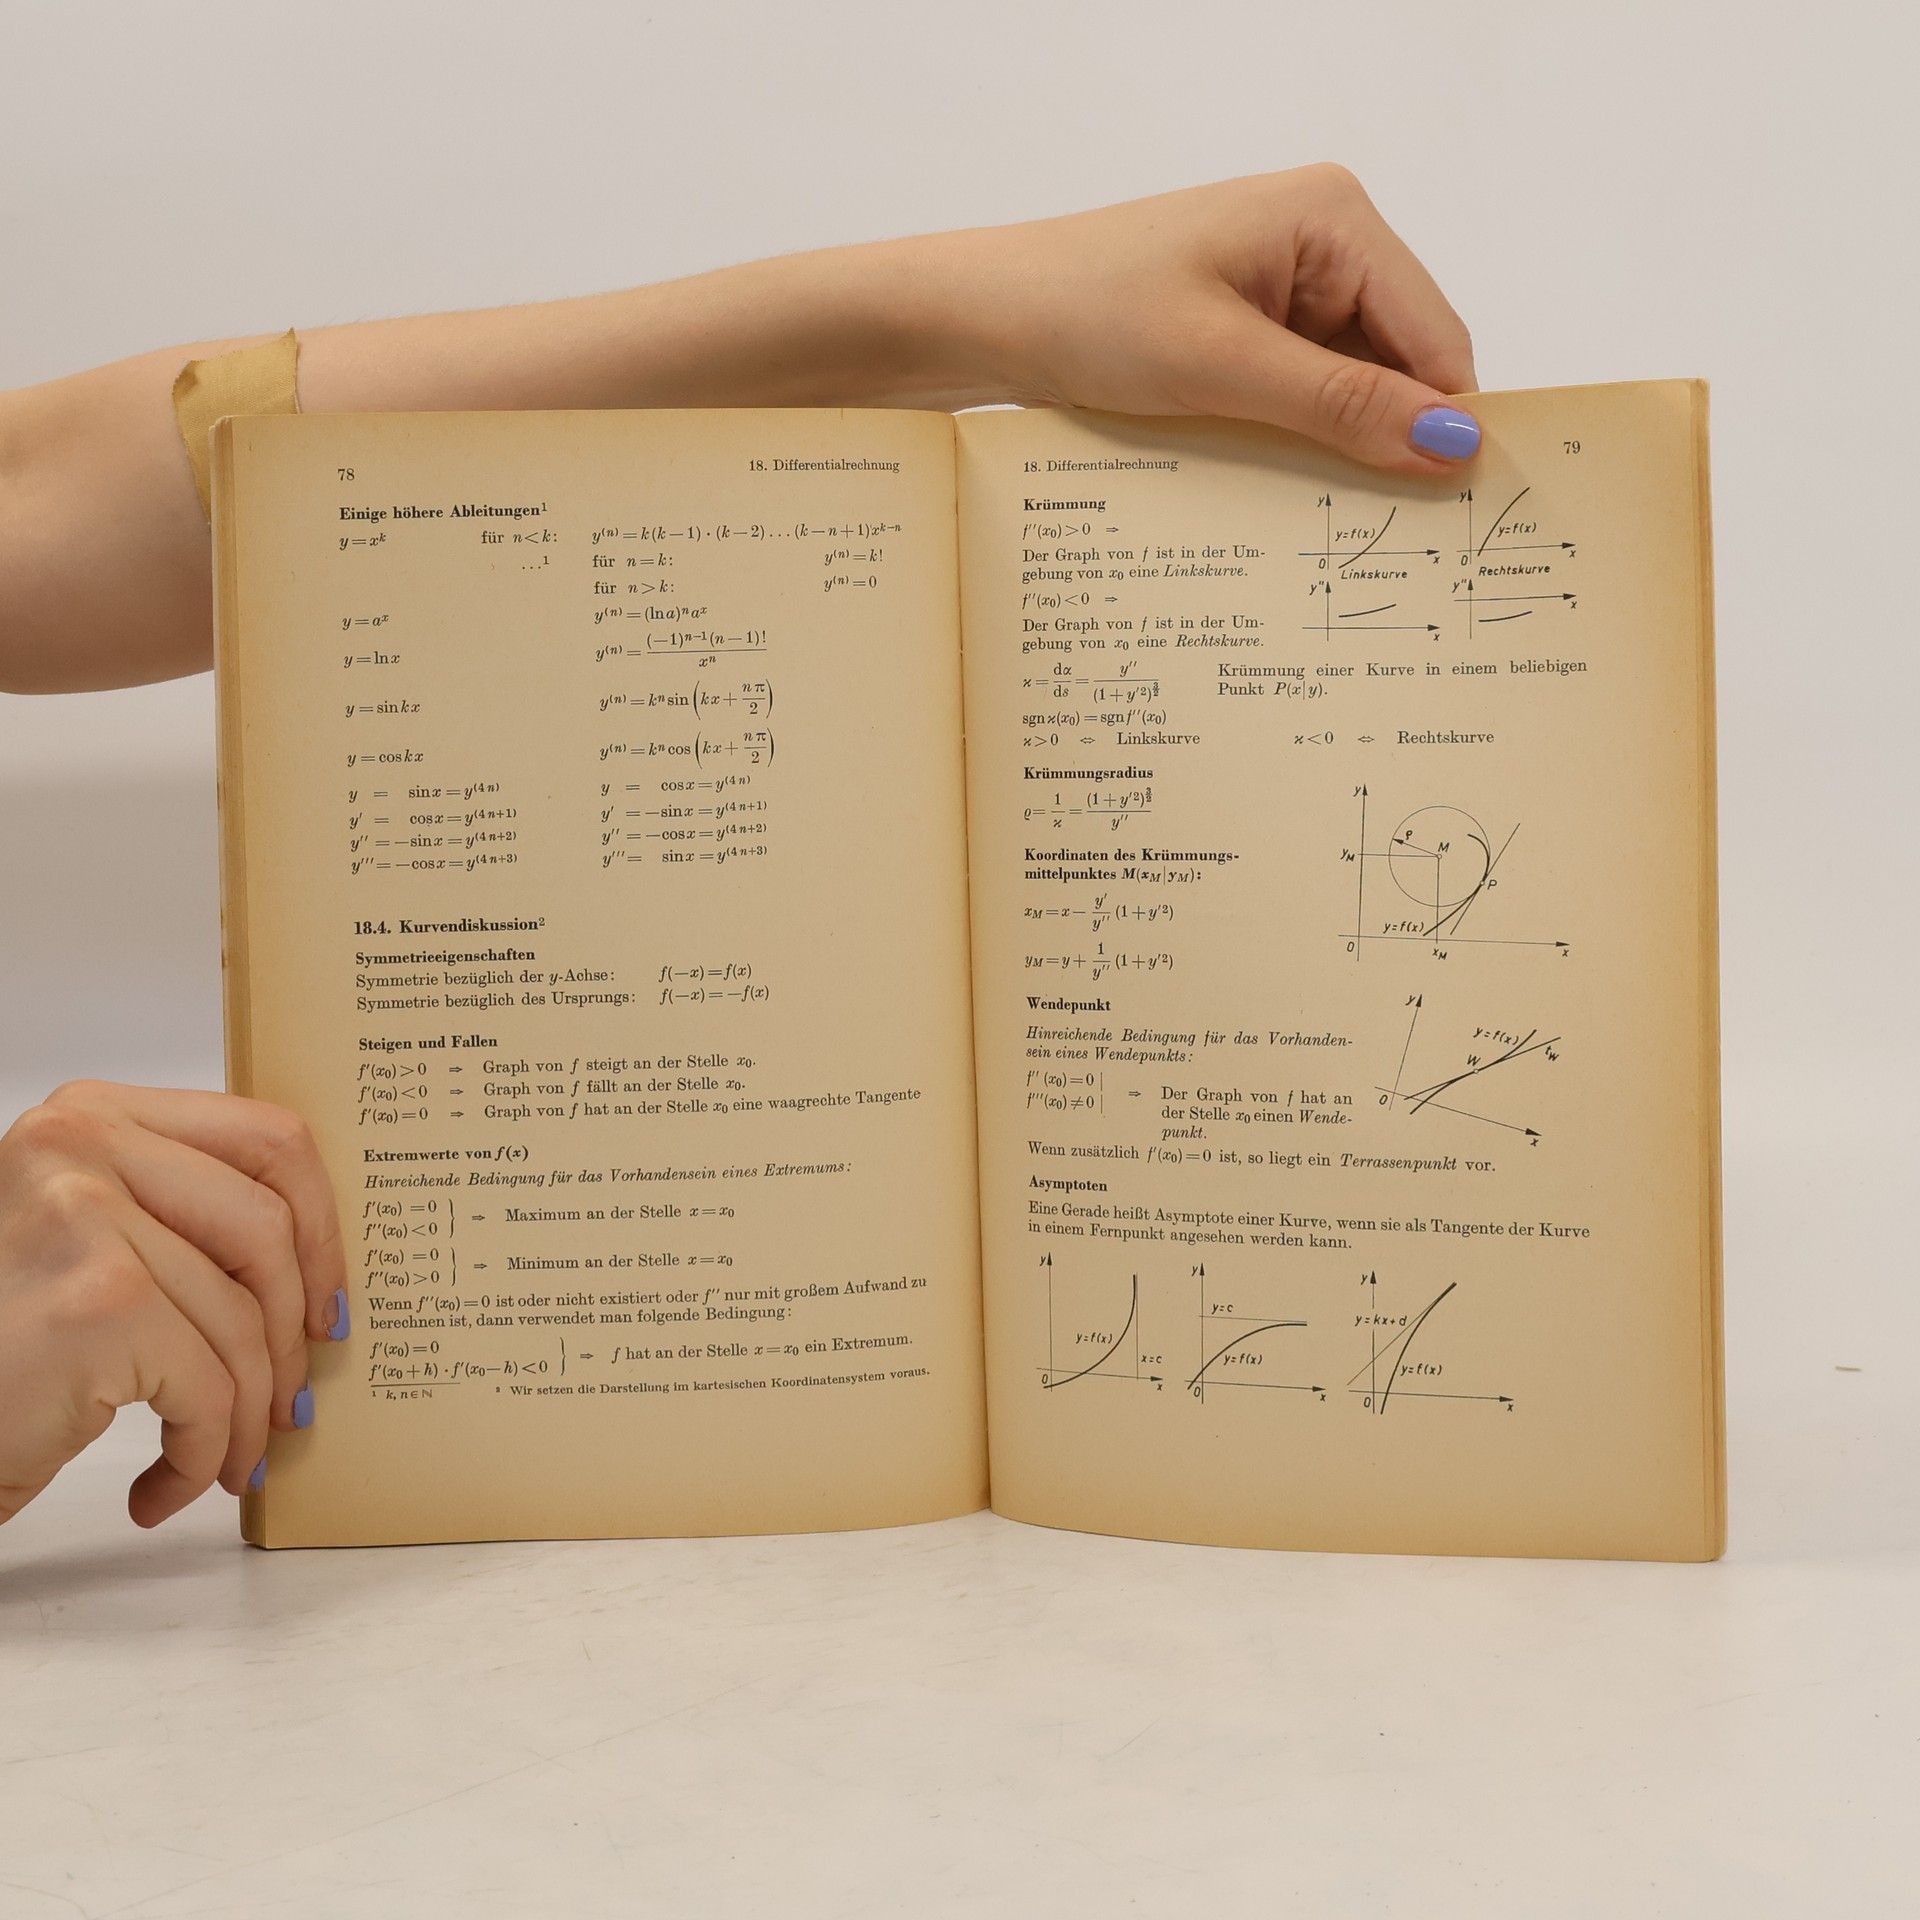 78
18. Differentialrechnung
Einige höhere Ableitungen¹
y=xᵏ für n<k: y⁽ⁿ⁾=k(k−1)·(k−2)...(k−n+1)xᵏ⁻ⁿ
...¹ für n=k: y⁽ⁿ⁾=k!
für n>k: y⁽ⁿ⁾=0
y=aˣ y⁽ⁿ⁾=(ln a)ⁿaˣ
y=ln x y⁽ⁿ⁾=(−1)ⁿ⁻¹(n−1)!/xⁿ
y=sin kx y⁽ⁿ⁾=kⁿ sin(kx+nπ/2)
y=cos kx y⁽ⁿ⁾=kⁿ cos(kx+nπ/2)
y = sin x=y⁽⁴ⁿ⁾ y = cos x=y⁽⁴ⁿ⁾
y' = cos x=y⁽⁴ⁿ⁺¹⁾ y' =−sin x=y⁽⁴ⁿ⁺¹⁾
y''=−sin x=y⁽⁴ⁿ⁺²⁾ y''=−cos x=y⁽⁴ⁿ⁺²⁾
y'''=−cos x=y⁽⁴ⁿ⁺³⁾ y'''= sin x=y⁽⁴ⁿ⁺³⁾
18.4. Kurvendiskussion²
Symmetrieeigenschaften
Symmetrie bezüglich der y-Achse: f(−x)=f(x)
Symmetrie bezüglich des Ursprungs: f(−x)=−f(x)
Steigen und Fallen
f'(x₀)>0 ⇒ Graph von f steigt an der Stelle x₀.
f'(x₀)<0 ⇒ Graph von f fällt an der Stelle x₀.
f'(x₀)=0 ⇒ Graph von f hat an der Stelle x₀ eine waagrechte Tangente
Extremwerte von f(x)
Hinreichende Bedingung für das Vorhandensein eines Extremums:
f'(x₀) =0
f''(x₀)<0 } ⇒ Maximum an der Stelle x=x₀
f'(x₀) =0
f''(x₀)>0 } ⇒ Minimum an der Stelle x=x₀
Wenn f''(x₀)=0 ist oder nicht existiert oder f'' nur mit großem Aufwand zu
berechnen ist, dann verwendet man folgende Bedingung:
f'(x₀)=0
f'(x₀+h)·f'(x₀−h)<0 } ⇒ f hat an der Stelle x=x₀ ein Extremum.
¹ k, n∈ℕ ² Wir setzen die Darstellung im kartesischen Koordinatensystem voraus.
18. Differentialrechnung
79
Krümmung
f''(x₀)>0 ⇒
Der Graph von f ist in der Um-
gebung von x₀ eine Linkskurve.
f''(x₀)<0 ⇒
Der Graph von f ist in der Um-
gebung von x₀ eine Rechtskurve.
y
y=f(x)
0
x
Linkskurve
y
y=f(x)
0
x
Rechtskurve
y''
x
y''
x
ϰ=dα/ds=y''/(1+y'²)^(3/2) Krümmung einer Kurve in einem beliebigen
Punkt P(x|y).
sgn ϰ(x₀)=sgn f''(x₀)
ϰ>0 ⇔ Linkskurve ϰ<0 ⇔ Rechtskurve
Krümmungsradius
ϱ=1/ϰ=(1+y'²)^(3/2)/y''
Koordinaten des Krümmungs-
mittelpunktes M(x_M|y_M):
x_M=x−y'/y''(1+y'²)
y_M=y+1/y''(1+y'²)
y
ϱ
M
y_M
P
y=f(x)
0
x_M
x
Wendepunkt
Hinreichende Bedingung für das Vorhanden-
sein eines Wendepunkts:
f''(x₀)=0 |
f'''(x₀)≠0 | ⇒ Der Graph von f hat an
der Stelle x₀ einen Wende-
punkt.
Wenn zusätzlich f'(x₀)=0 ist, so liegt ein Terrassenpunkt vor.
y
y=f(x)
W
t_W
0
x
Asymptoten
Eine Gerade heißt Asymptote einer Kurve, wenn sie als Tangente der Kurve
in einem Fernpunkt angesehen werden kann.
y
y=f(x)
x=c
0
x
y
y=c
y=f(x)
0
x
y
y=kx+d
y=f(x)
0
x